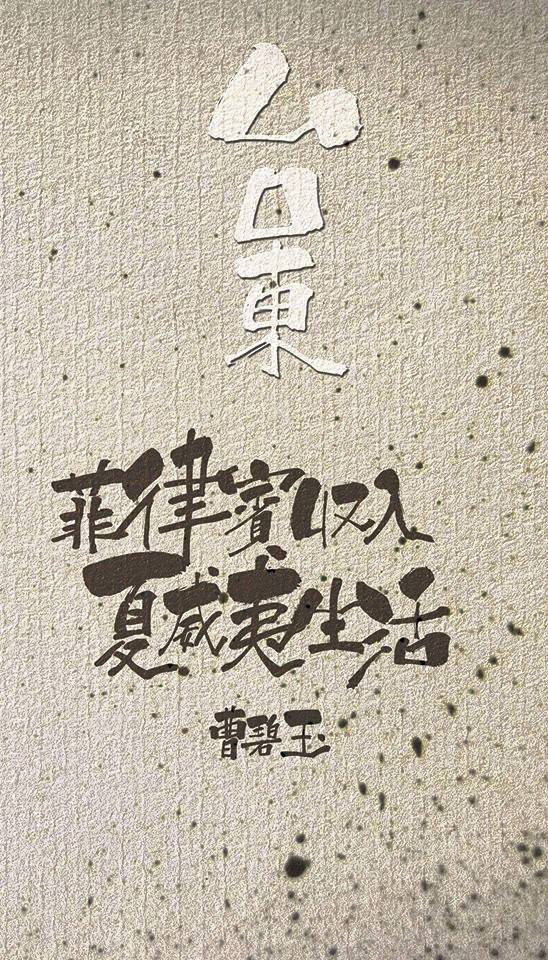 台東
菲律賓收入
夏威夷生活
曹碧玉